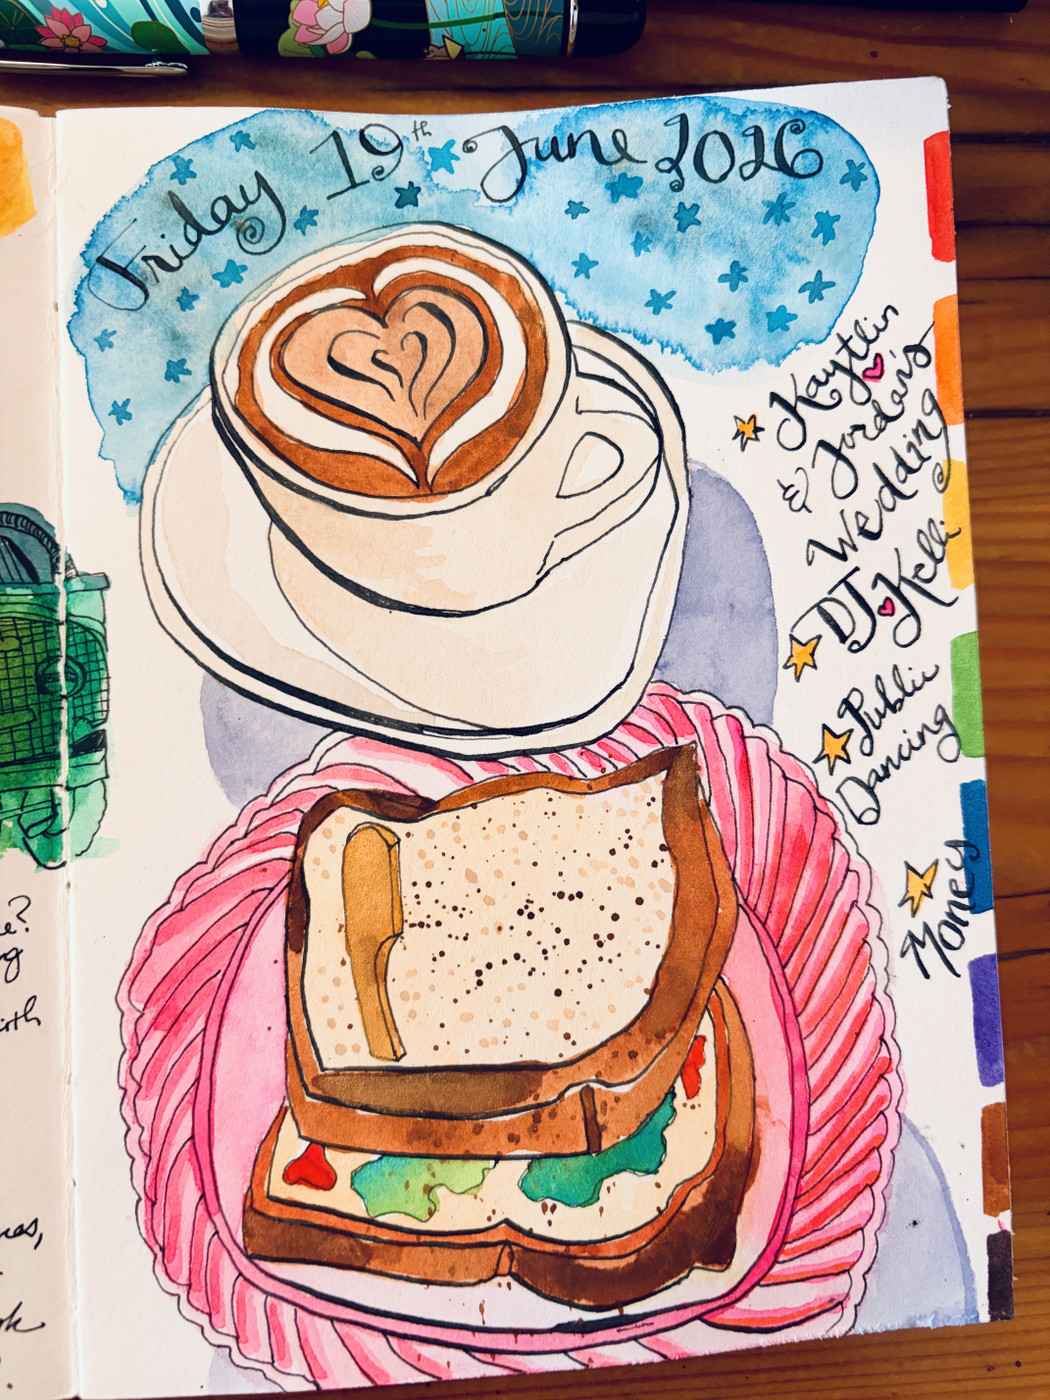 Friday 19th June 2026
Kaytlin
& Jordan's
Wedding
DJ Kelli
Public
Dancing
Money